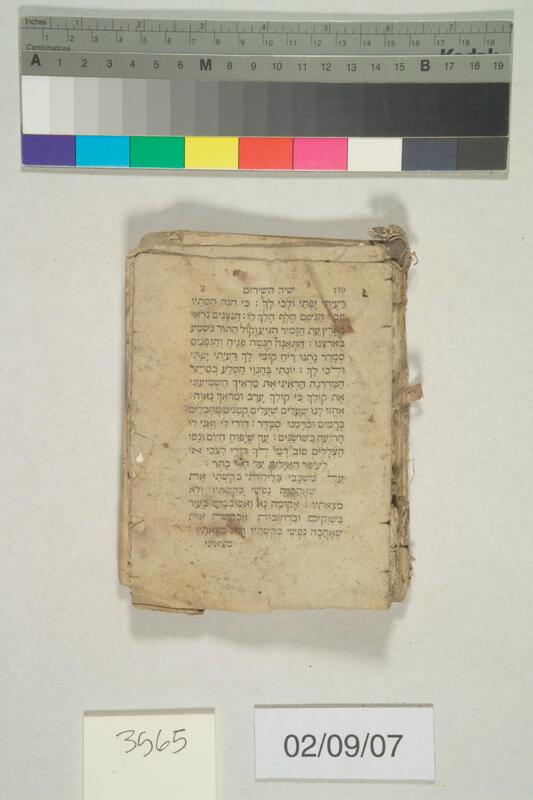 Inches 1 2 3 4 5 6 7
1 2 3 4 5 6 7 8 9 10 11 12 13 14 15 16 17 18 19
Centimetres
A 1 2 3 4 5 6 M 8 9 10 11 12 13 14 15 B 17 18 19
179 שיר השירים צ
רעיתי יפתי ולכי לך : כי הנה הסתיו
עבר הגשם חלף הלך לו : הנצנים נראו
בארץ עת הזמיר הגיע וקול התור נשמע
בארצנו : התאנה חנטה פגיה והגפנים
סמדר נתנו ריח קומי לך רעיתי יפתי
ולכי לך : יונתי בחגוי הסלע בסתר
המדרגה הראיני את מראיך השמיעיני
את קולך כי קולך ערב ומראך נאוה :
אחזו לנו שועלים שעלים קטנים מחבלים
כרמים וכרמנו סמדר : דודי לי ואני לו
הרועה בשושנים : עד שיפוח היום ונסו
הצללים סוב דמה לך דודי לצבי או
לעופר האילים על הרי בתר :
על משכבי בלילות בקשתי את
שאהבה נפשי בקשתיו ולא
מצאתיו : אקומה נא ואסובבה בעיר
בשוקים וברחובות אבקשה את
שאהבה נפשי בקשתיו ולא מצאתיו :
מצאוני
3565
02/09/07